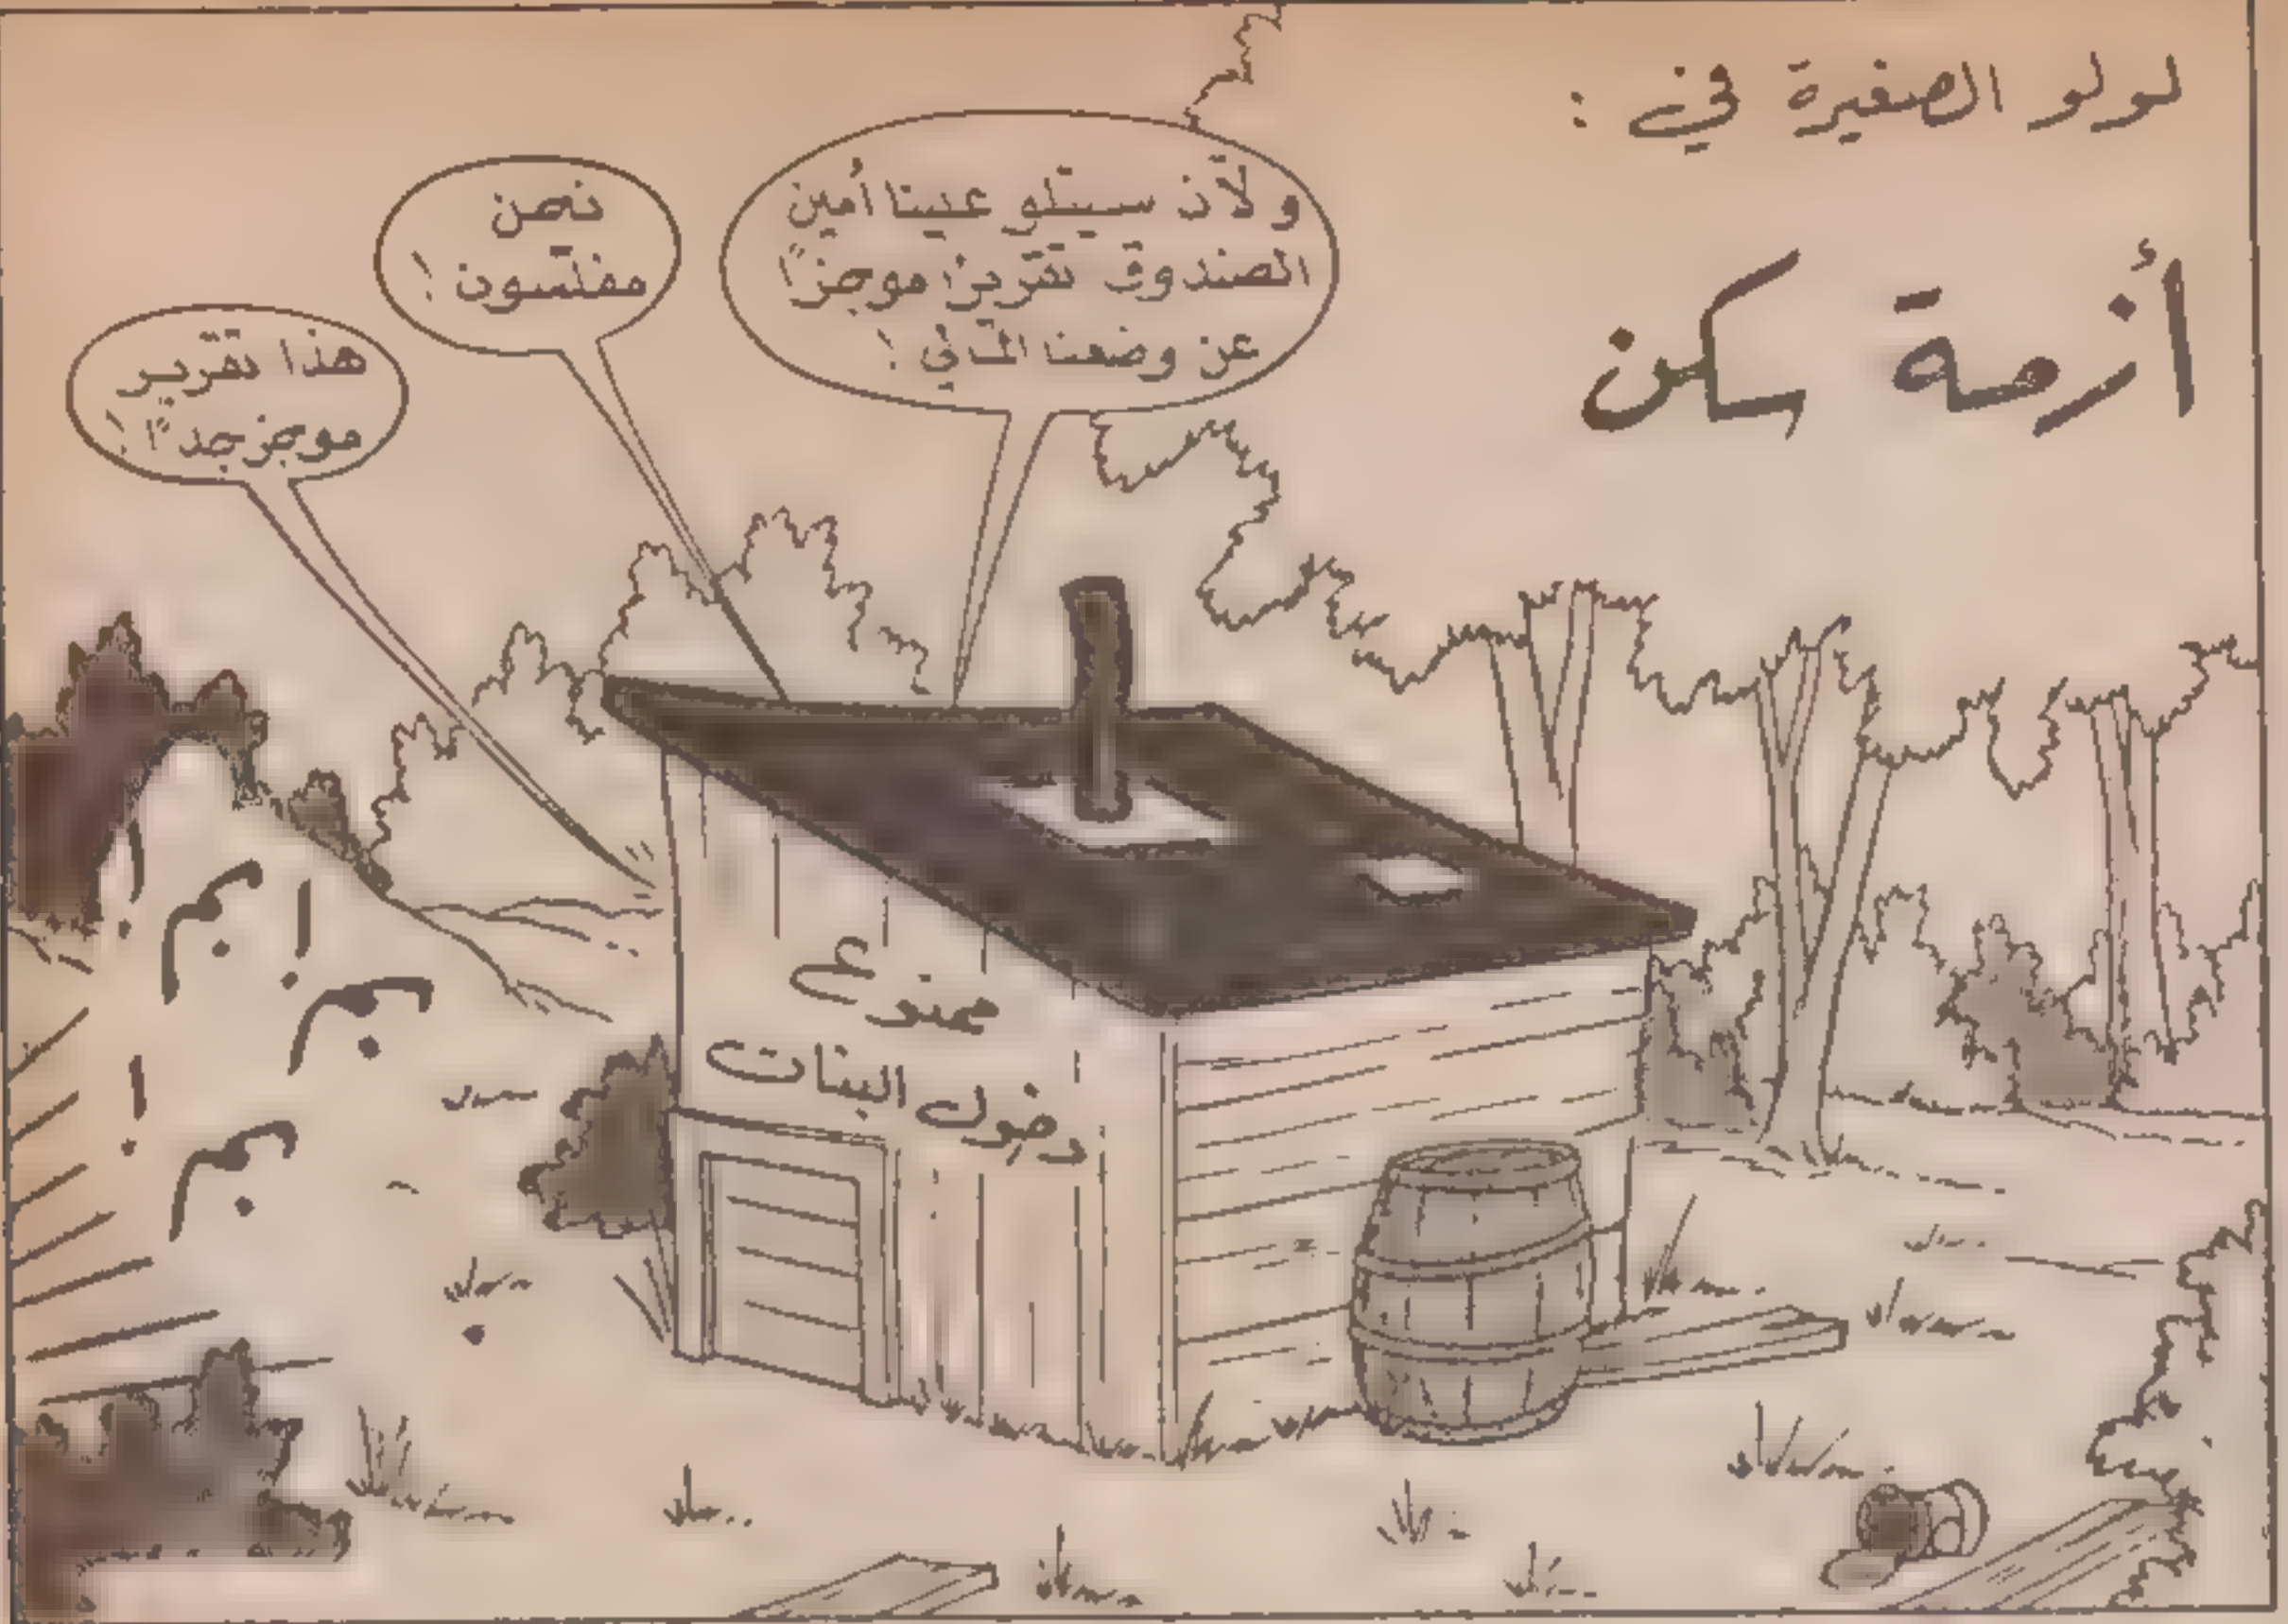 لولو الصغيرة في :
أزمة سكن
ولآن سيتلو عيينا أمين
الصندوق تقريرًا موجزًا
عن وضعنا المالي !
نحن
مفلسون !
هذا تقرير
موجز جدًا !
ممنوع
دخول البنات